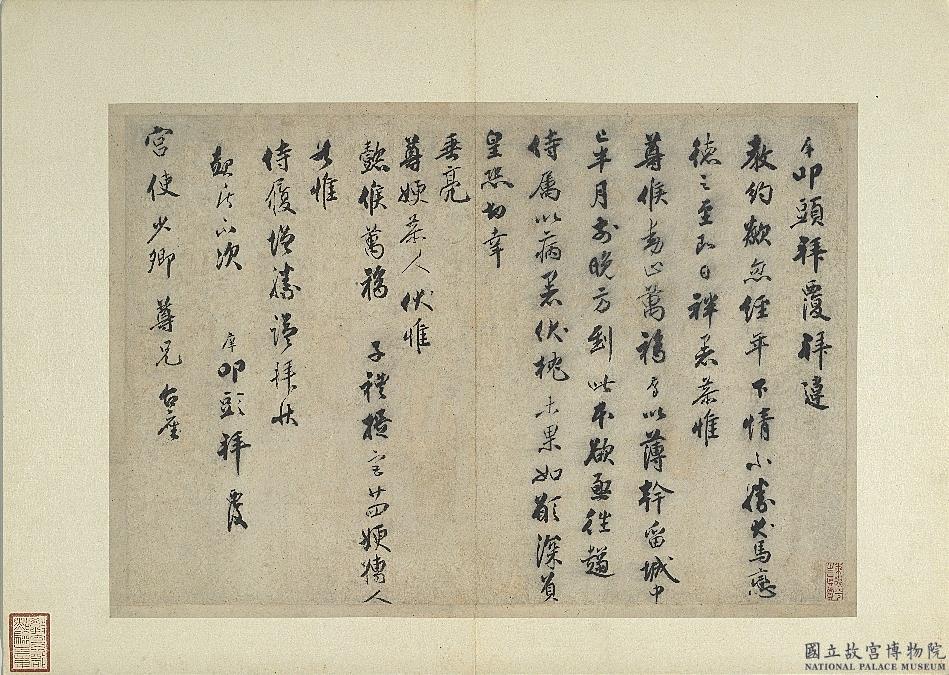 叩頭拜覆拜違
教約欻忽經年下情不勝犬馬戀
德之至即日祥暑恭惟
尊候動止萬福 以薄幹留城中
半月前晚方到此本欲亟往趨
侍屬以病暑伏枕未果如願深負
皇恐切幸
垂亮
尊嫂恭人伏惟
懿候萬福 子禮提 廿四嫂孺人
共惟
侍履增勝謹拜狀
起居不次 叩頭拜覆
宮使少卿 尊兄 台座
國立故宮博物院
NATIONAL PALACE MUSEUM